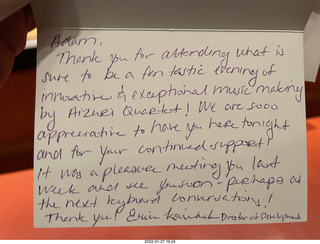 Adam,
Thank you for attending what is
sure to be a fantastic evening of
innovative & exceptional music making
by Aizuri Quartet! We are sooo
appreciative to have you here tonight
and for your continued support!
It was a pleasure meeting you last
week and see you soon - perhaps at
the next keyboard conversations!
Thank you! Director of Development
2022-01-27 19:24